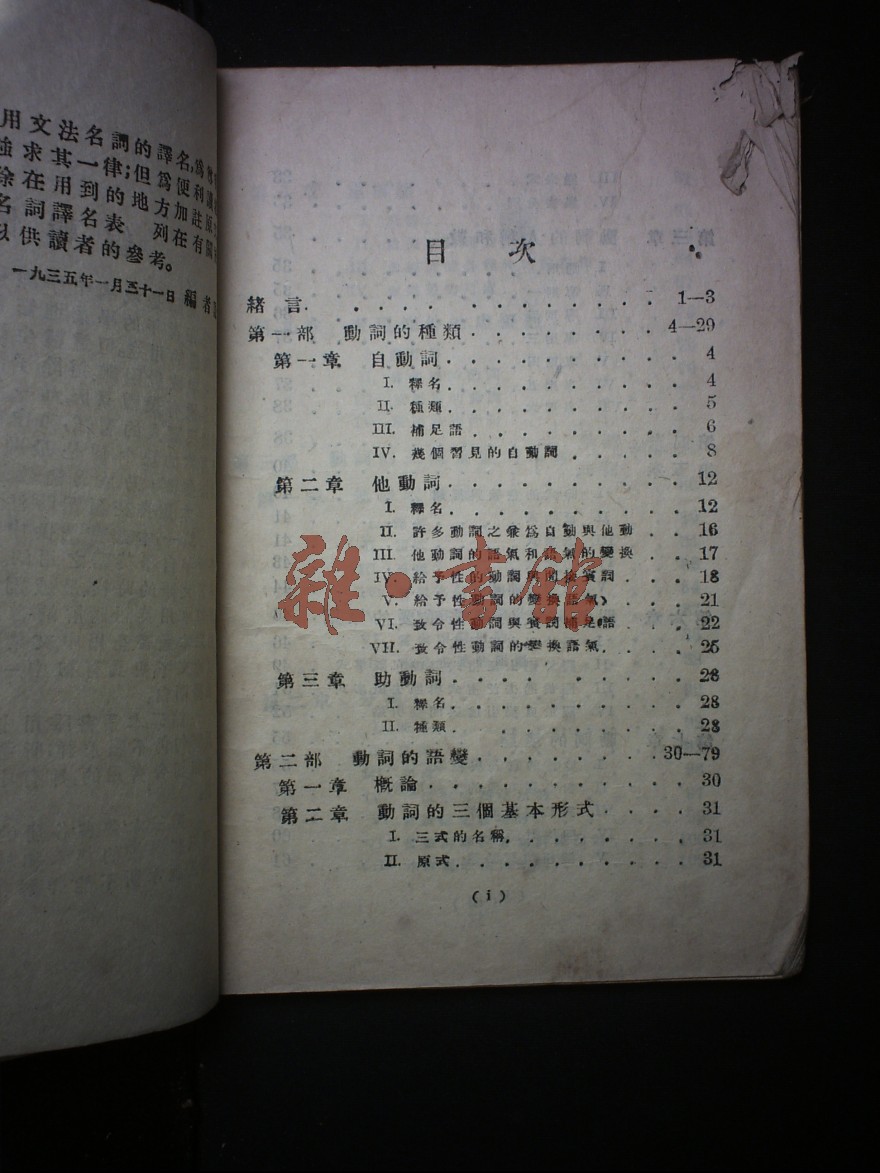 用文法名詞的譯名,爲
強求其一律;但爲便利讀
除在用到的地方加註原
名詞譯名表 列在有關
以供讀者的參考。
一九三五年一月三十一日 編者
目 次
緒言 1—3
第一部 動詞的種類 4—29
第一章 自動詞 4
I. 釋名 4
II. 種類 5
III. 補足語 6
IV. 幾個習見的自動詞 8
第二章 他動詞 12
I. 釋名 12
II. 許多動詞之兼爲自動與他動 16
III. 他動詞的語氣和語氣的變換 17
IV. 給予性的動詞與間接賓詞 18
V. 給予性動詞的變換語氣 21
VI. 致令性動詞與賓詞補足語 22
VII. 致令性動詞的變換語氣 25
第三章 助動詞 28
I. 釋名 28
II. 種類 28
第二部 動詞的語變 30—79
第一章 概論 30
第二章 動詞的三個基本形式 31
I. 三式的名稱 31
II. 原式 31
(i)
雜·書館